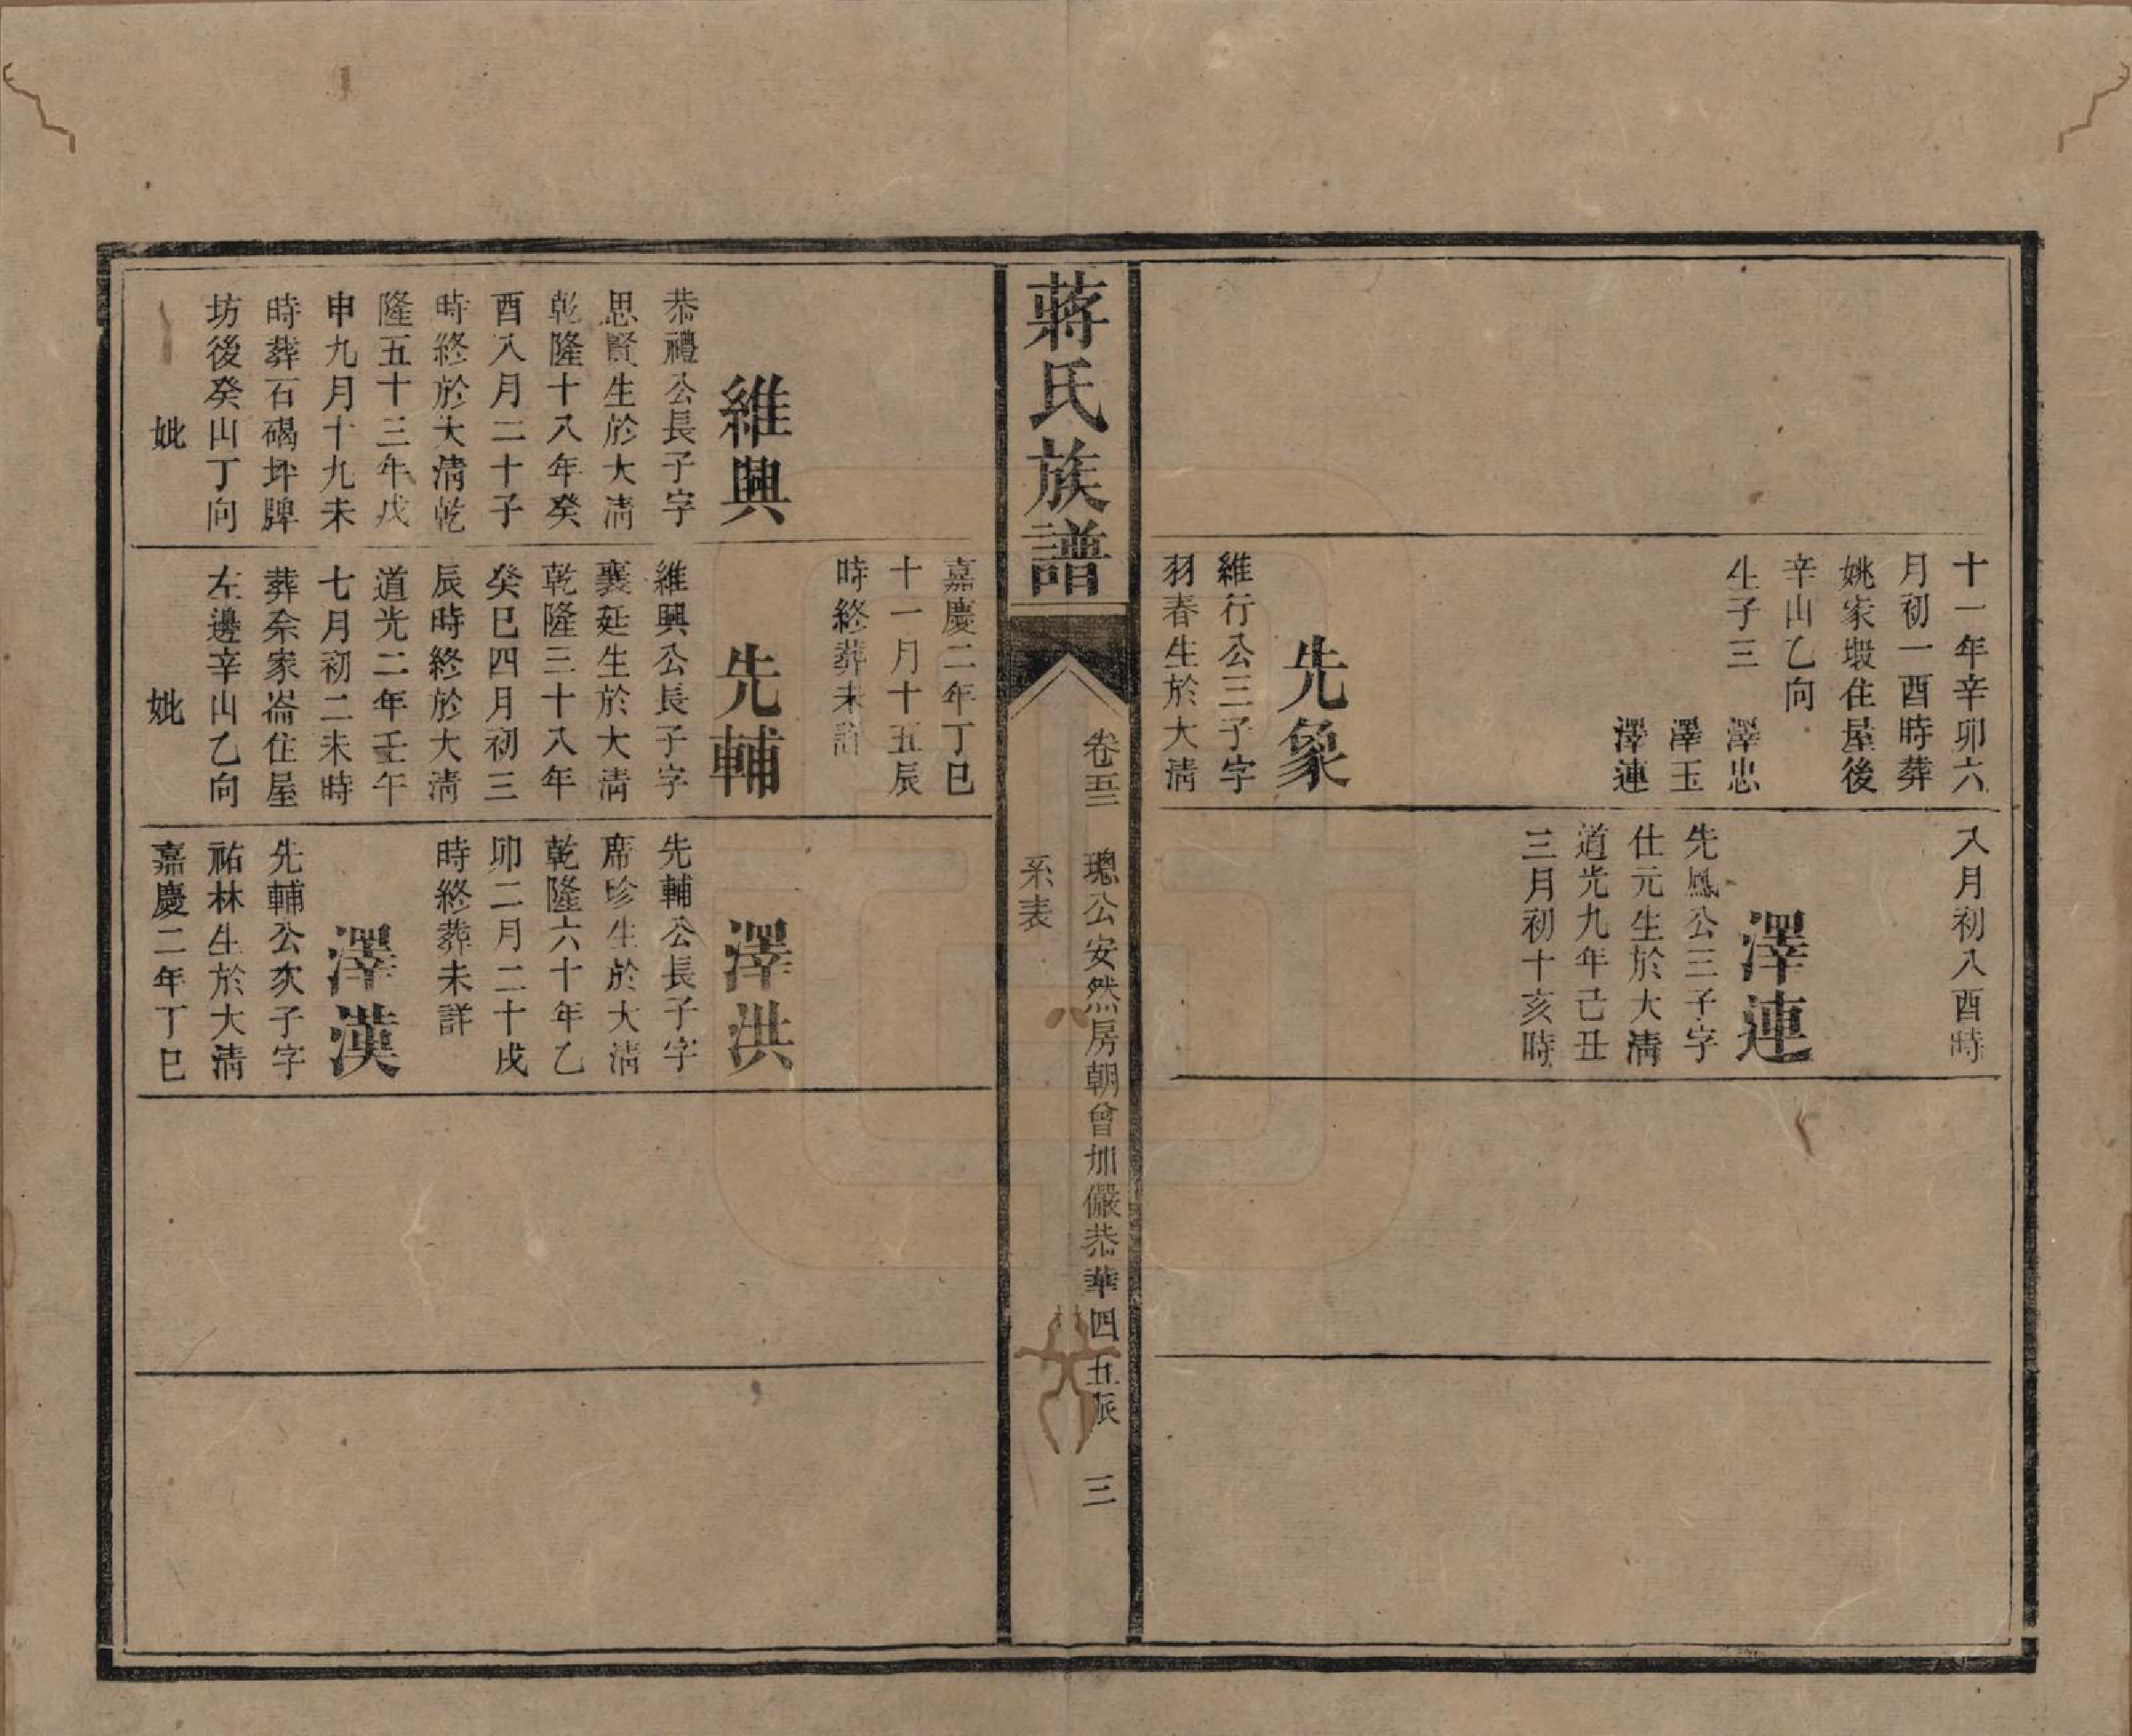 十一年辛卯六
月初一酉時葬
姚家塅住屋後
辛山乙向
生子三　澤忠
澤玉
澤連
先象
維行公三子字
羽春生於大淸
八月初八酉時
澤連
先鳳公三子字
仕元生於大淸
道光九年己丑
三月初十亥時
蔣氏族譜
卷五三　璁公安然房朝曾加儼恭華四五派　三
系表
維興
恭禮公長子字
思賢生於大淸
乾隆十八年癸
酉八月二十子
時終於大淸乾
隆五十三年戊
申九月十九未
時葬石碣坪牌
坊後癸山丁向
妣
嘉慶二年丁巳
十一月十五辰
時終葬未詳
先輔
維興公長子字
襄廷生於大淸
乾隆三十八年
癸巳四月初三
辰時終於大淸
道光二年壬午
七月初二未時
葬佘家崙住屋
左邊辛山乙向
妣
澤洪
先輔公長子字
席珍生於大淸
乾隆六十年乙
卯二月二十戌
時終葬未詳
澤漢
先輔公次子字
祐林生於大淸
嘉慶二年丁巳